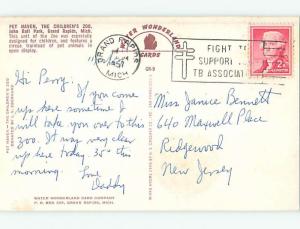 PET HAVEN, THE CHILDREN'S ZOO,
John Ball Park, Grand Rapids, Mich.
This unit of the Zoo was especially
designed for children, and features a
circus trainload of pet animals in
open display.
WATER WONDERLAND
GRAND RAPIDS
1957
MICH
FIGHT TB
SUPPORT
TB ASSOCIAT
2¢
Hi Perry,
If you come
up here some time I
will take you over to this
zoo. It was very clear
up here today 35° this
morning.
love
Daddy
Miss Janice Bennett
640 Maxwell Place
Ridgewood
New Jersey
WATER WONDERLAND CARD COMPANY
GRAND RAPIDS, MICH.